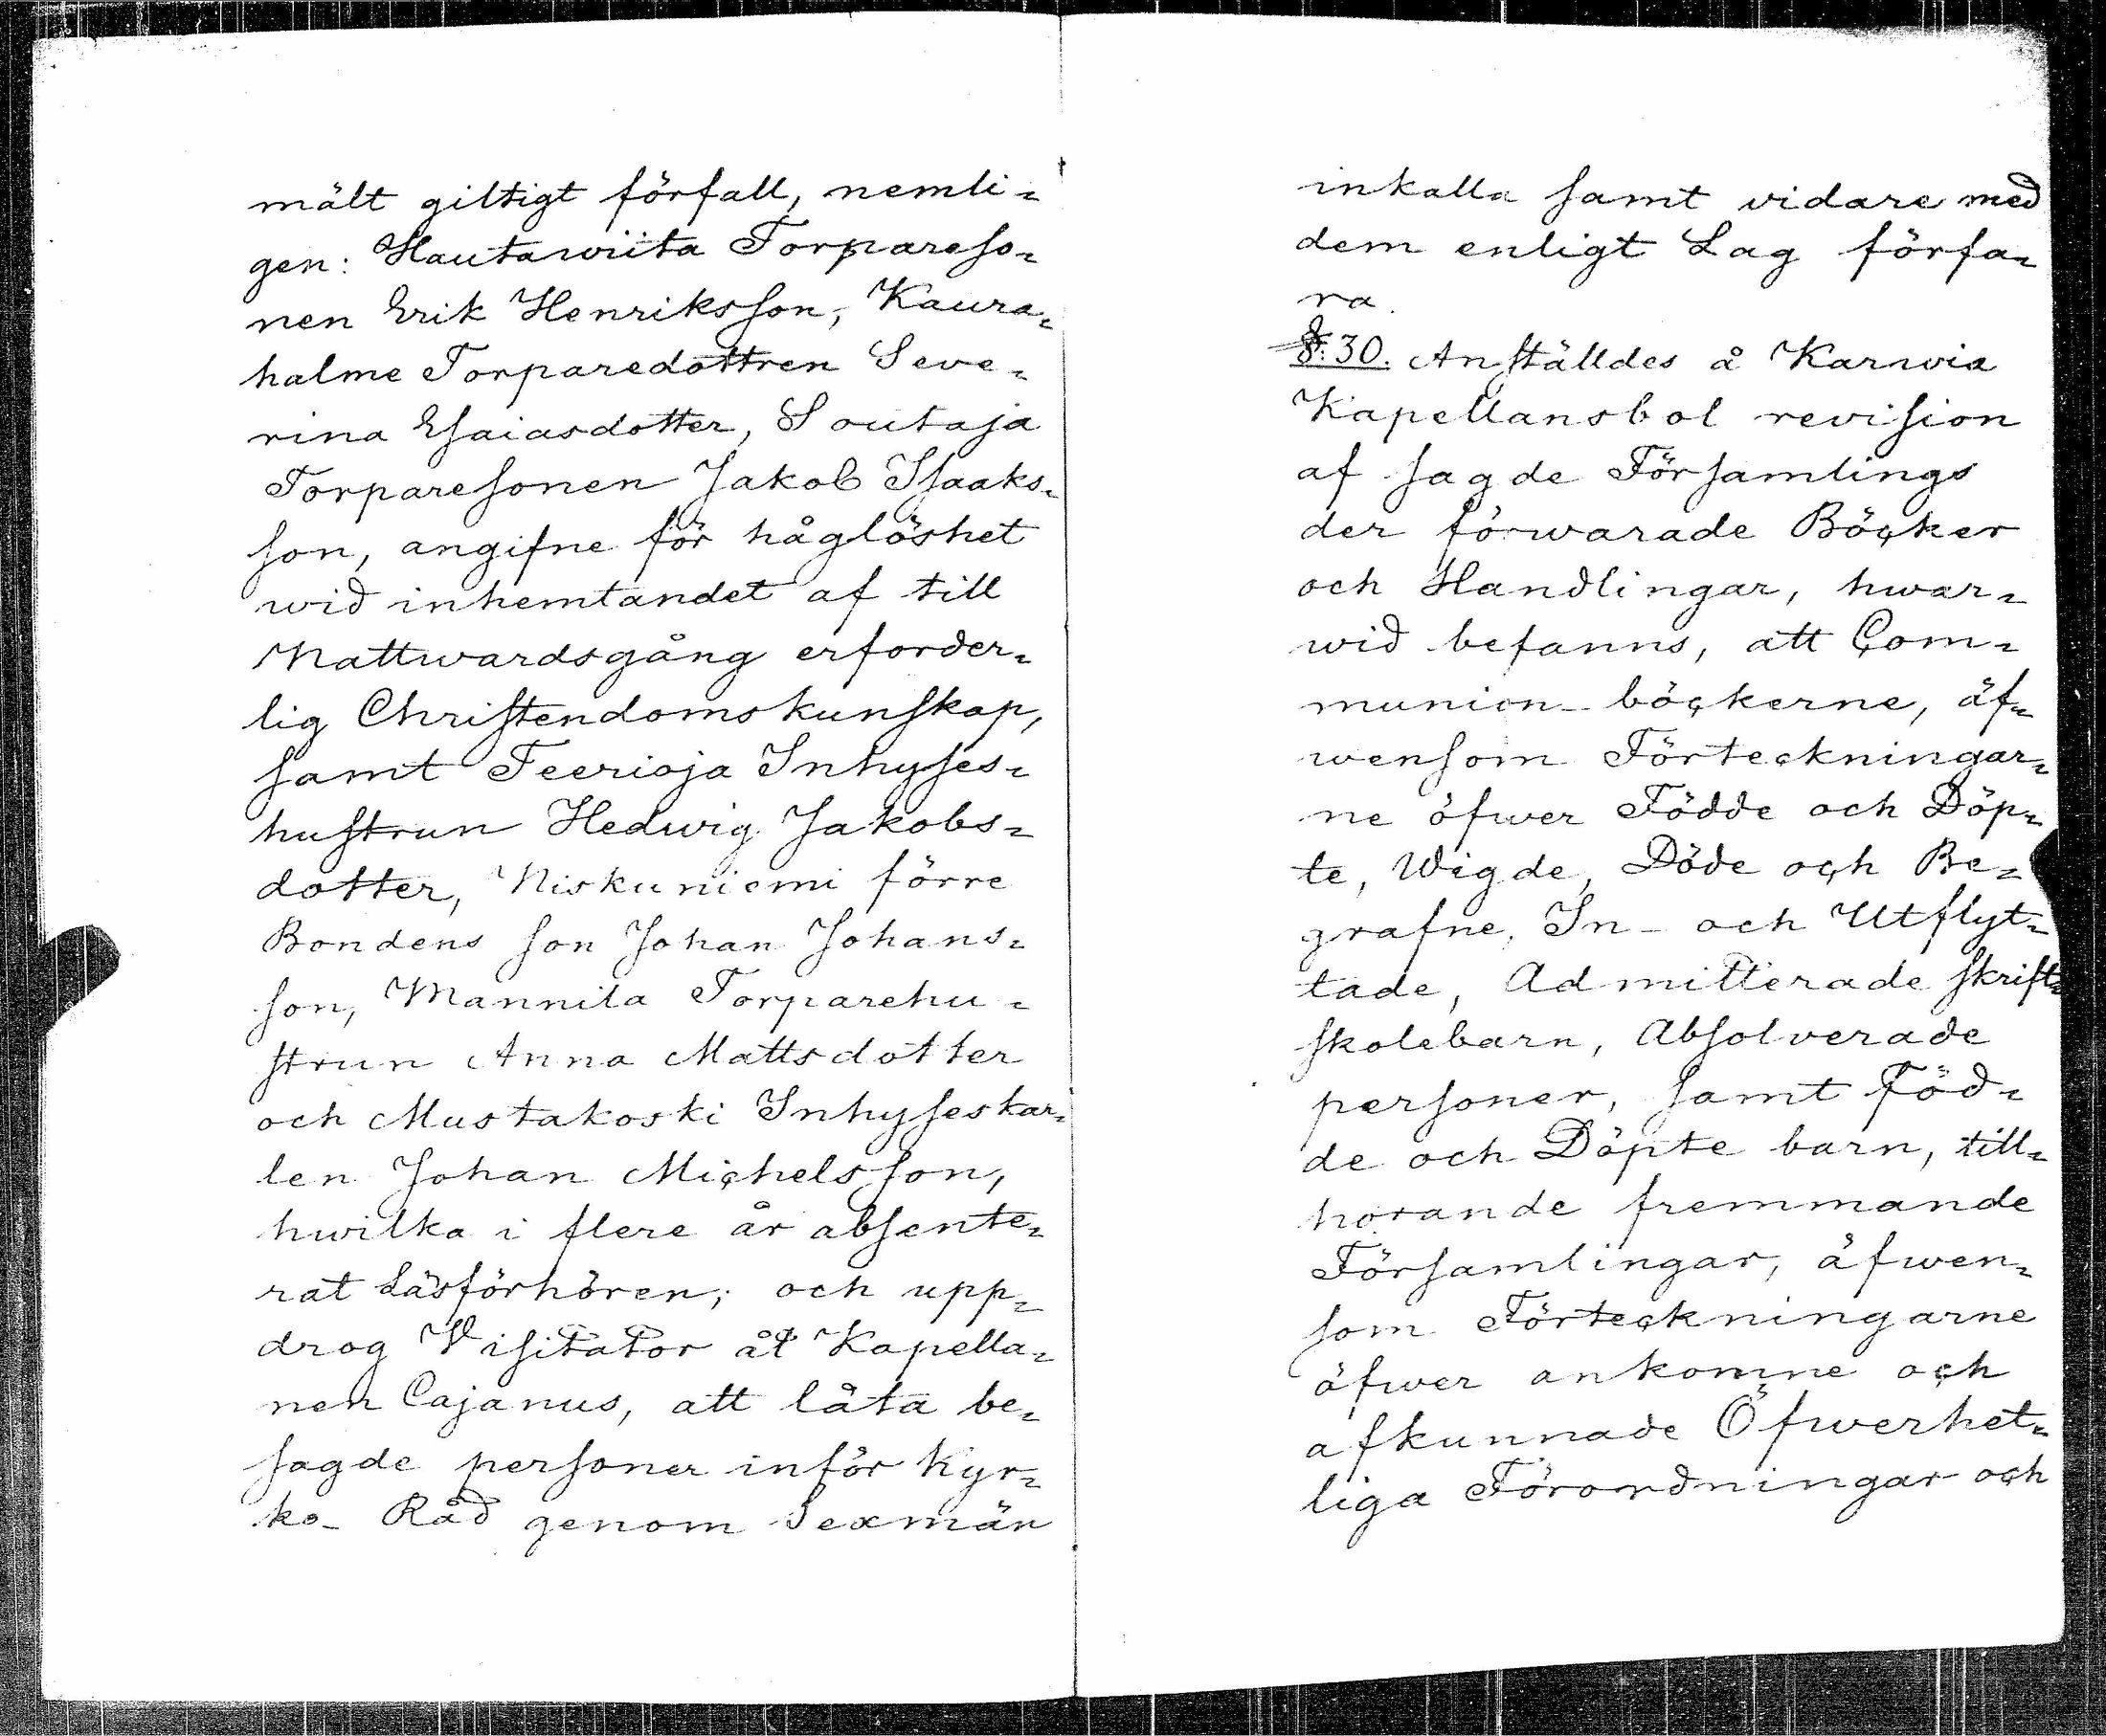 mält giltigt förfall, nemli=
gen: Hautawiita Torpareso=
nen Erik Henriksson, Kaura=
halme Torparedottren Seve=
rina Esaiasdotter, Soutaja
Torparesonen Jakob Isaaks=
son, angifne för håglöshet
wid inhemtandet af till
Nattwardsgång erforder=
lig Christendomskunskap,
samt Teerioja Inhyses=
hustrun Hedwig Jakobs=
dotter, Niskuniemi förre
Bondens son Johan Johans=
son, Mannila Torparehu=
strun Anna Mattsdotter
och Mustakoski Inhyseskar=
len Johan Michelsson,
hwilka i flere år absente=
rat Läsförhören; och upp=
drog Visitator åt Kapella=
nen Cajanus, att låta be=
sagde personer inför Kyr=
ko- Råd genom Sexmän
inkalla samt vidare med
dem enligt Lag förfa=
ra.
§: 30. Anställdes å Karwia
Kapellansbol revision
af sagde Församlings
der förwarade Böcker
och Handlingar, hwar=
wid befanns, att Com=
munion-böckerne, äf=
wensom Förteckningar=
ne öfwer Födde och Döp=
te, Wigde, Döde och Be=
grafne, In- och Utflyt=
tade, Admitterade skrift=
skolebarn, Absolverade
personer, samt Föd=
de och Döpte barn, till=
hörande fremmande
Församlingar, äfwen=
som Förteckningarne
öfwer ankomne och
afkunnade Öfwerhet=
liga Förordningar och